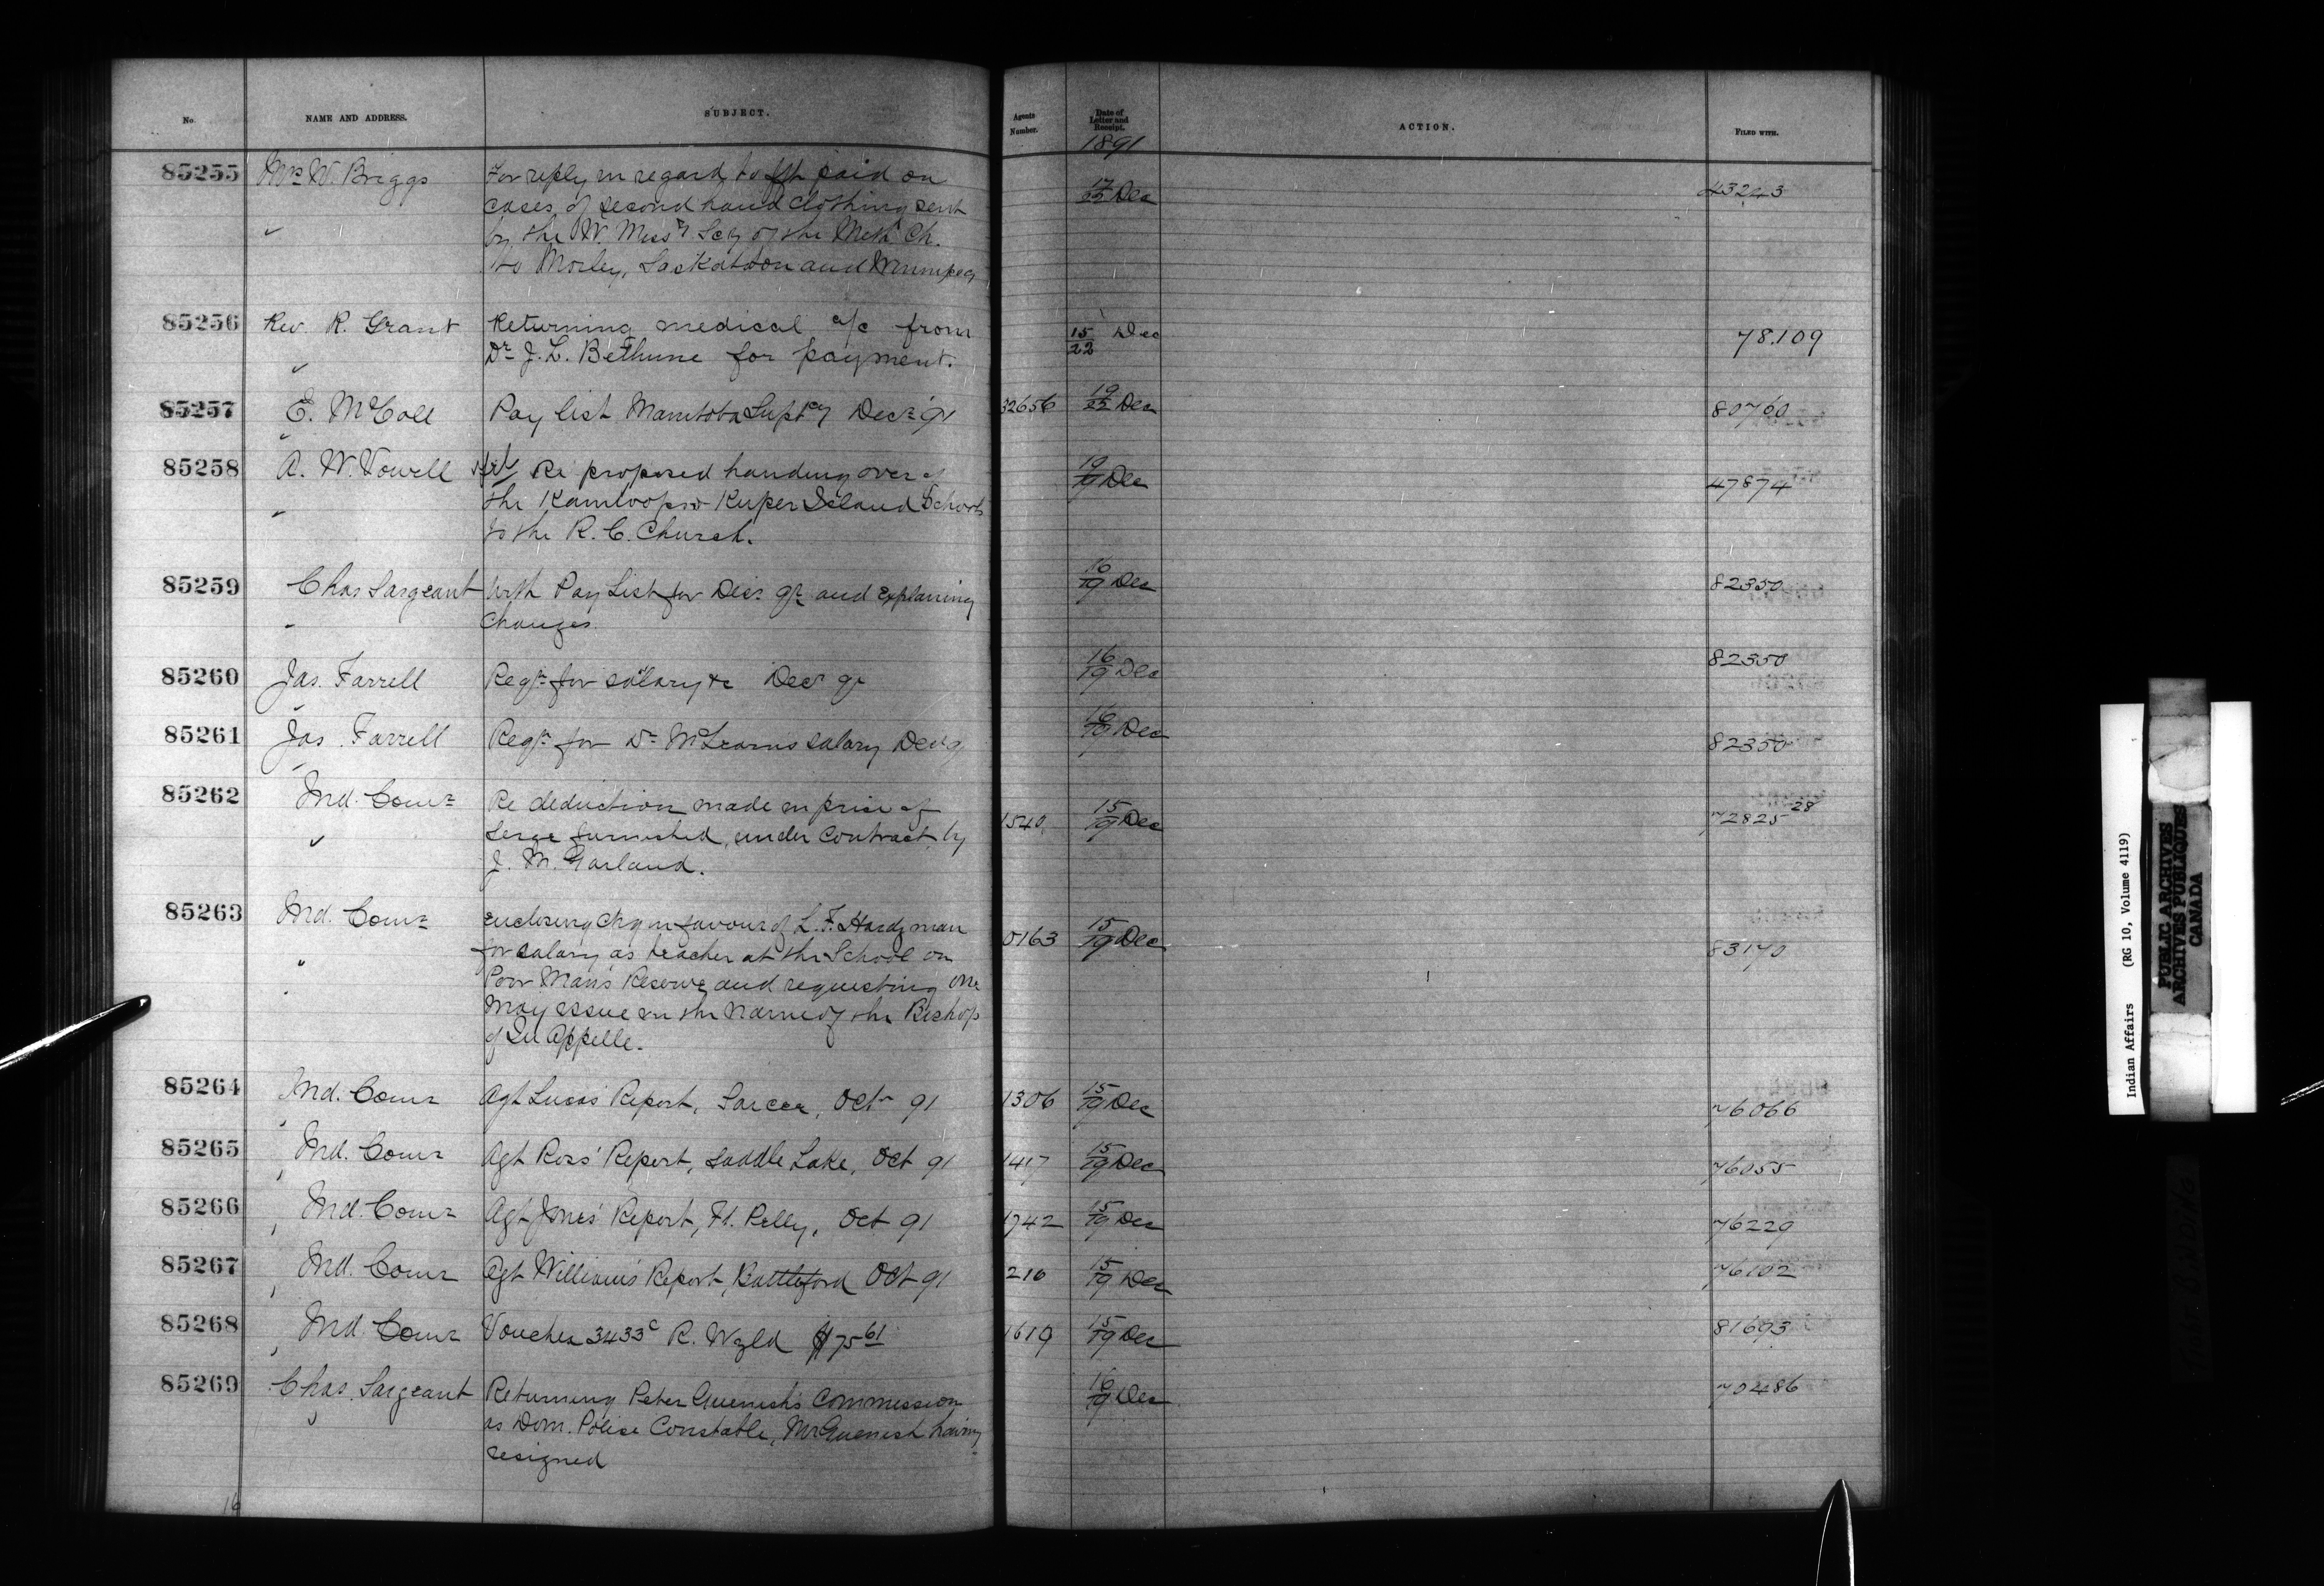 No. NAME AND ADDRESS. SUBJECT. Agents Number. Date of Letter and Receipt. ACTION. FILED WITH.
1891
85255 Mrs W. Briggs For reply in regard to frt paid on 17/22 Dec 43243
cases of second hand clothing sent
by the W. Missy Socy of the Meth Ch.
to Morley, Saskatoon and Winnipeg
85256 Rev. R. Grant Returning medical a/c from 15/22 Dec 78.109
Dr J. L. Bethune for payment.
85257 E. McColl Pay list Manitoba Suptcy Decr 91 32656 19/22 Dec 80760
85258 A. W. Vowell Re proposed handing over of 19/19 Dec 47874
the Kamloops & Kuper Island Schools
to the R. C. Church.
85259 Chas Sargeant With Pay List for Decr qr and Explaining 16/19 Dec 82350
Changes.
85260 Jas. Farrell Reqn for salary &c Decr qr 16/19 Dec 82350
85261 Jas. Farrell Reqn for Dr McLearns salary Decr q 16/19 Dec 82350
85262 Ind. Comr Re deduction made in price of 1540 15/19 Dec 72825 28
Serge furnished, under Contract by
J. M. Garland.
85263 Ind. Comr Enclosing Chq in favour of L. F. Hardyman 0163 15/19 Dec 83170
for salary as teacher at the School on
Poor Man's Reserve and requesting one
may issue in the name of the Bishop
of Qu'Appelle.
85264 Ind. Comr Agt Lucas' Report, Sarcee, Octr 91 1306 15/19 Dec 76066
85265 Ind. Comr Agt Ross' Report, Saddle Lake, Oct 91 1417 15/19 Dec 76055
85266 Ind. Comr Agt Jones' Report, Ft. Pelly, Oct 91 1742 15/19 Dec 76229
85267 Ind. Comr Agt William's Report, Battleford Oct 91 210 15/19 Dec 76102
85268 Ind. Comr Voucher 3433c R. Wyld $75 61 1619 15/19 Dec 81693
85269 Chas. Sargeant Returning Peter Quenish's Commission 16/19 Dec 70486
as Dom. Police Constable, Mr Quenish having
resigned
16
Indian Affairs (RG 10, Volume 4119)
PUBLIC ARCHIVES
ARCHIVES PUBLIQUES
CANADA